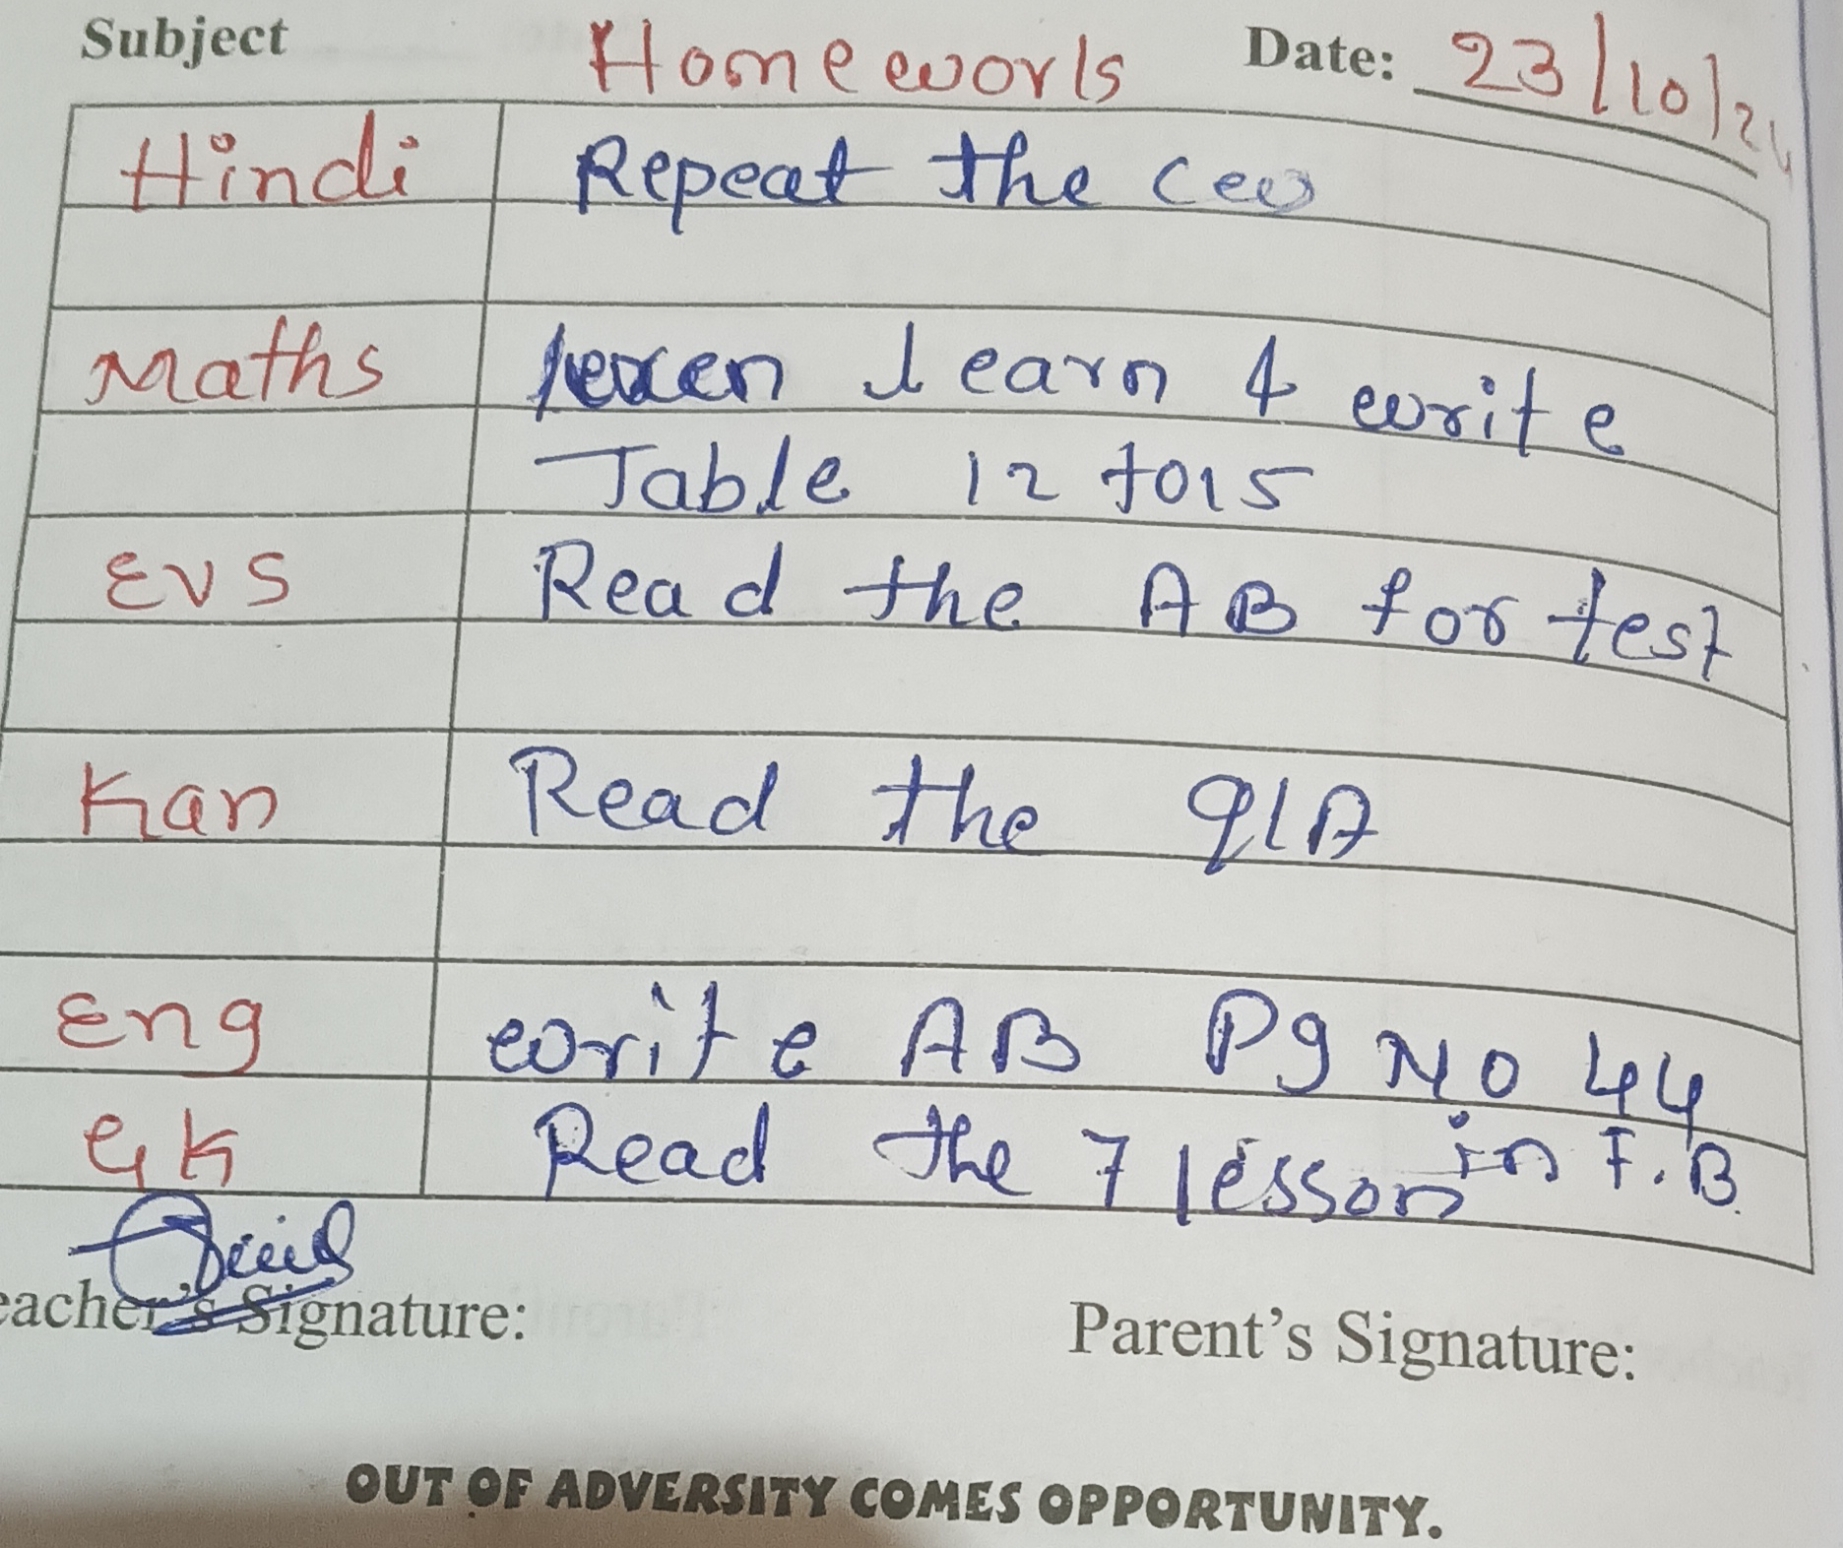 Subject Homework Date: 23/10/24
Hindi Repeat the cw
Maths learn & write
Table 12 to 15
EVS Read the AB for test
Kan Read the Q/A
Eng write AB Pg No 44
GK Read the 7 lesson in T.B.
eacher's Signature: Parent's Signature:
OUT OF ADVERSITY COMES OPPORTUNITY.